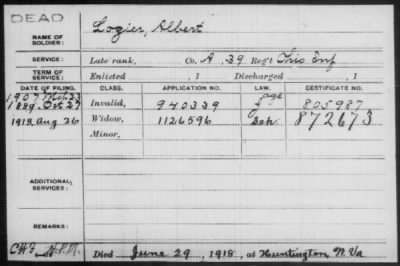 DEAD
NAME OF SOLDIER: Lozier, Albert
SERVICE: Late rank, Co. A, 39 Reg't Ohio Inf
TERM OF SERVICE: Enlisted , 1 Discharged , 1
DATE OF FILING. CLASS. APPLICATION NO. LAW. CERTIFICATE NO.
1907
1889. Oct 27 Invalid, 940339 age 805987
1918 Aug 26 Widow, 1126596 872673
Minor,
ADDITIONAL SERVICES:
REMARKS:
Died June 29, 1918, at Huntington, W. Va